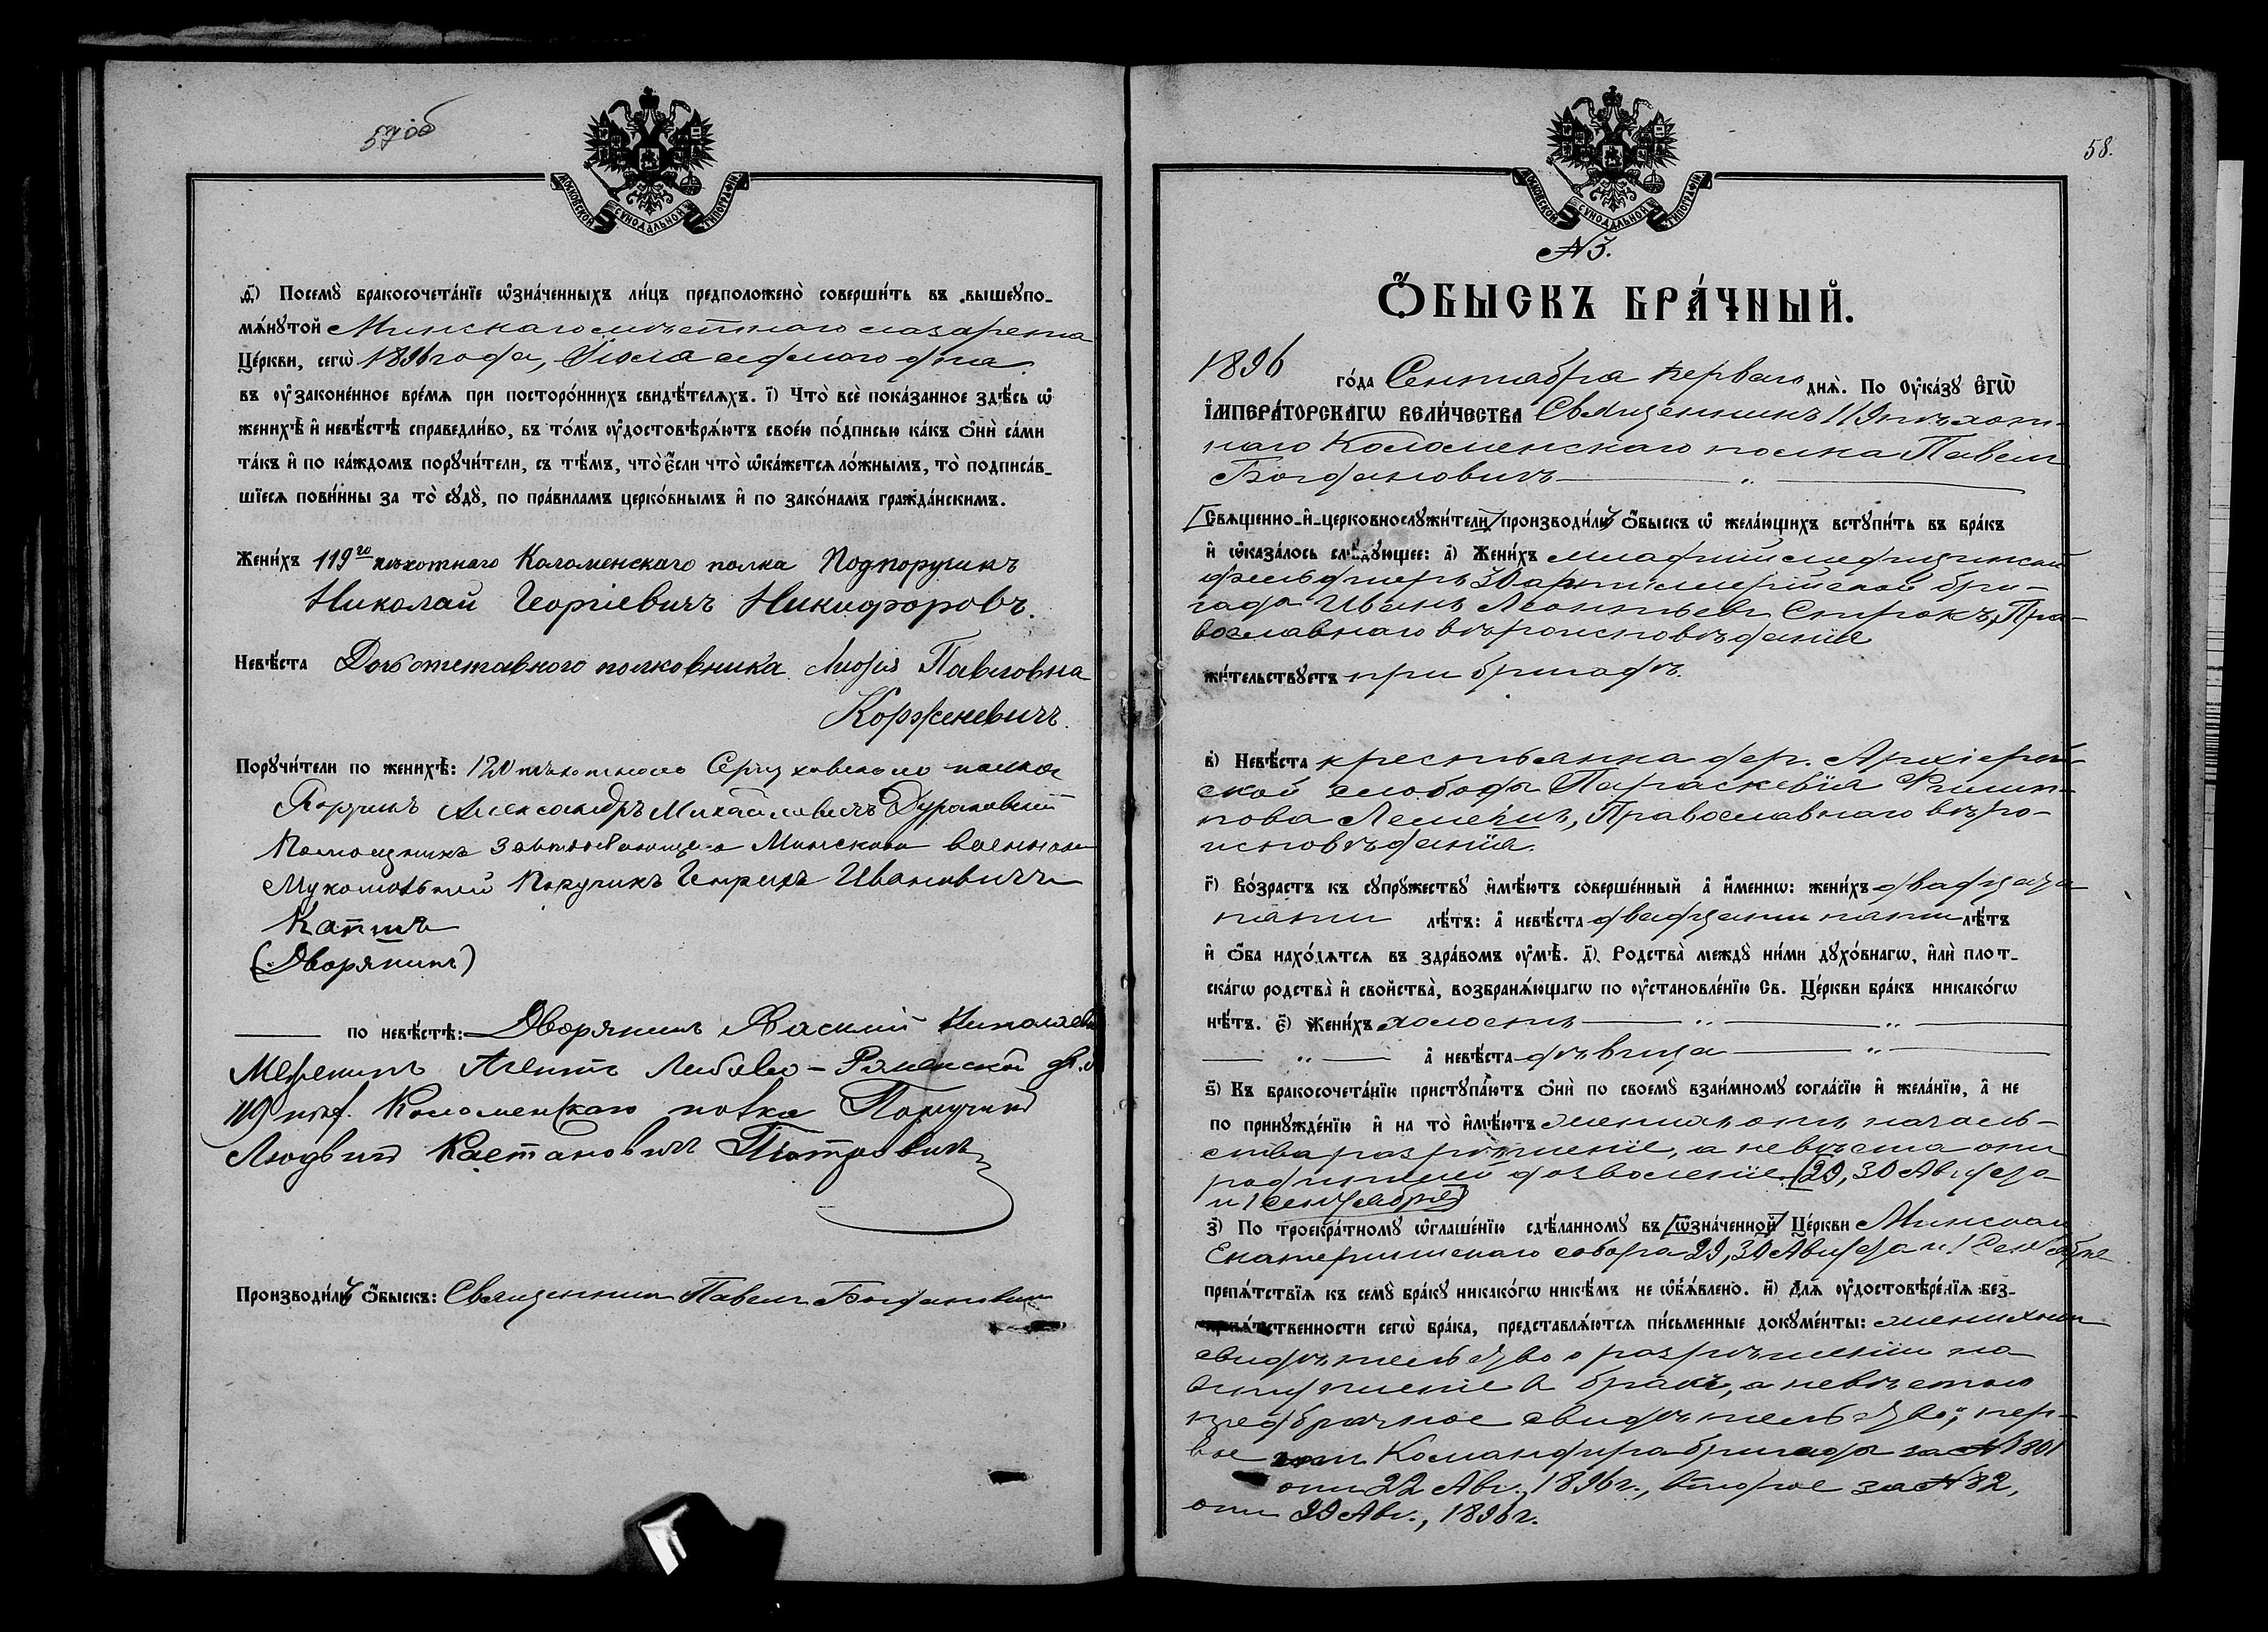 57об
МОСКОВСКОЙ СѴНОДАЛЬНОЙ ТИПОГРАФІИ.
ѳ҃) Посемꙋ̀ бракосочета́нїе ѡ҆зна́ченныхъ ли́цъ предположено̀ соверши́ть въ вышеꙋпо-
мѧ́нꙋтой Минскаго мѣстнаго лазарета
Це́ркви, сегѡ̀ 1896 года, Іюля седмого дня
въ ᲂу҆законе́нное вре́мѧ при посторо́ннихъ свидѣ́телѧхъ. і҃) Что̀ всѐ пока́занное здѣ́сь ѡ҆
женихѣ̀ и҆ невѣ́стѣ справедли́во, въ то́мъ ᲂу҆достовѣрѧ́ютъ свое́ю по́дписью ка́къ ѻ҆нѝ са́ми
та́къ и҆ по ка́ждомъ порꙋчи́тели, съ тѣ́мъ, что̀ є҆́сли что̀ ѡ҆ка́жется ло́жнымъ, то̀ подписа́в-
шїеся пови́нны за то̀ сꙋдꙋ̀, по пра́виламъ церко́внымъ и҆ по зако́намъ гражда́нскимъ.
Жени́хъ 119го пѣхотнаго Коломенскаго полка Подпоручикъ
Николай Георгіевичъ Никифоровъ.
Невѣ́ста Дочь отставного полковника Лидія Павловна
Корженевичъ.
Порꙋчи́тели по женихѣ̀: 120 пѣхотнаго Серпуховскаго полка
Поручикъ Александръ Михайловичъ
Помощникъ Завѣдывающаго Минскою военною
Мукомольней Поручикъ Генрихъ Ивановичъ
(Дворянинъ)
по невѣ́стѣ: Дворянинъ Николаевичъ
Агентъ Либаво-Роменской ж.д.
119 пѣх. Коломенскаго полка Поручикъ
Людвигъ Каетановичъ Піотровичъ
Производи́лъ ѻ҆́быскъ: Священникъ Павелъ Богдановичъ
58.
МОСКОВСКОЙ СѴНОДАЛЬНОЙ ТИПОГРАФІИ.
№ 3.
Ѻ҆́БЫСКЪ БРА́ЧНЫЙ.
1896 го́да Сентября перваго днѧ̀. По ᲂу҆ка́зꙋ Є҆ГѠ̀
І҆МПЕРА́ТОРСКАГѠ ВЕЛИ́ЧЕСТВА Священникъ 119 пѣхот-
наго Коломенскаго полка Павелъ
Богдановичъ
Свѧщенно-и҆-церковнослꙋжи́тели производи́лъ ѻ҆́быскъ ѡ҆ жела́ющихъ встꙋпи́ть въ бра́къ
и҆ ѡ҆каза́лось слѣ́дꙋющее: а҃) Жени́хъ младшій медицинскій
фельдшеръ 30 артиллерійской бри-
гады Иванъ Леонтьевъ Строкъ, Пра-
вославнаго вѣроисповѣданія
жи́тельствꙋетъ при бригадѣ.
в҃) Невѣ́ста крестьянка дер. Архіерей-
ской слободы Параскевія Филип-
пова Православнаго вѣро-
исповѣданія.
г҃) Во́зрастъ къ сꙋпрꙋжествꙋ и҆мѣ́ютъ соверше́нный а҆ и҆́меннѡ: жени́хъ двадцати
пяти лѣ́тъ: а҆ невѣ́ста двадцати пяти лѣ́тъ
и҆ ѻ҆́ба нахо́дѧтсѧ въ здра́вомъ ᲂу҆мѣ̀. д҃) Родства̀ междꙋ̀ ни́ми дꙋхо́внагѡ, и҆лѝ плот-
ска́гѡ родства̀ и҆ свойства̀, возбранѧ́ющагѡ по ᲂу҆становле́нїю Св. Це́ркви бра́къ никако́гѡ
нѣ́тъ. є҃) Жени́хъ холостъ
а҆ невѣ́ста дѣвица
ѕ҃) Къ бракосочета́нїю пристꙋпа́ютъ ѻ҆нѝ по своемꙋ̀ взаи́мномꙋ согла́сїю и҆ жела́нїю, а҆ не
по принꙋжде́нїю и҆ на то̀ и҆мѣ́ютъ женихъ отъ началь-
ства разрѣшеніе, а невѣста отъ
родителей дозволеніе. (29, 30 Августа
и 1 сентября)
з҃) По троекра́тномꙋ ѡ҆глаше́нїю сдѣ́ланномꙋ въ ѡ҆зна́ченной Це́ркви Минскаго
Екатерининскаго собора 29, 30 Августа и 1 Сентября
препѧ́тствїѧ къ семꙋ̀ бра́кꙋ никако́гѡ никѣ́мъ не ѡ҆бъѧ́влено. и҃) Длѧ̀ ᲂу҆достовѣре́нїѧ без-
препѧ́тственности сегѡ̀ бра́ка, представлѧ́ютсѧ пи́сьменные докꙋме́нты: женихомъ
свидѣтельство о разрѣшеніи на
вступленіе въ бракъ, а невѣстою
предбрачное свидѣтельство; пер-
вое отъ Командира бригады за № 1801
отъ 22 Авг., 1896 г., второе за № 82,
отъ 29 Авг., 1896 г.